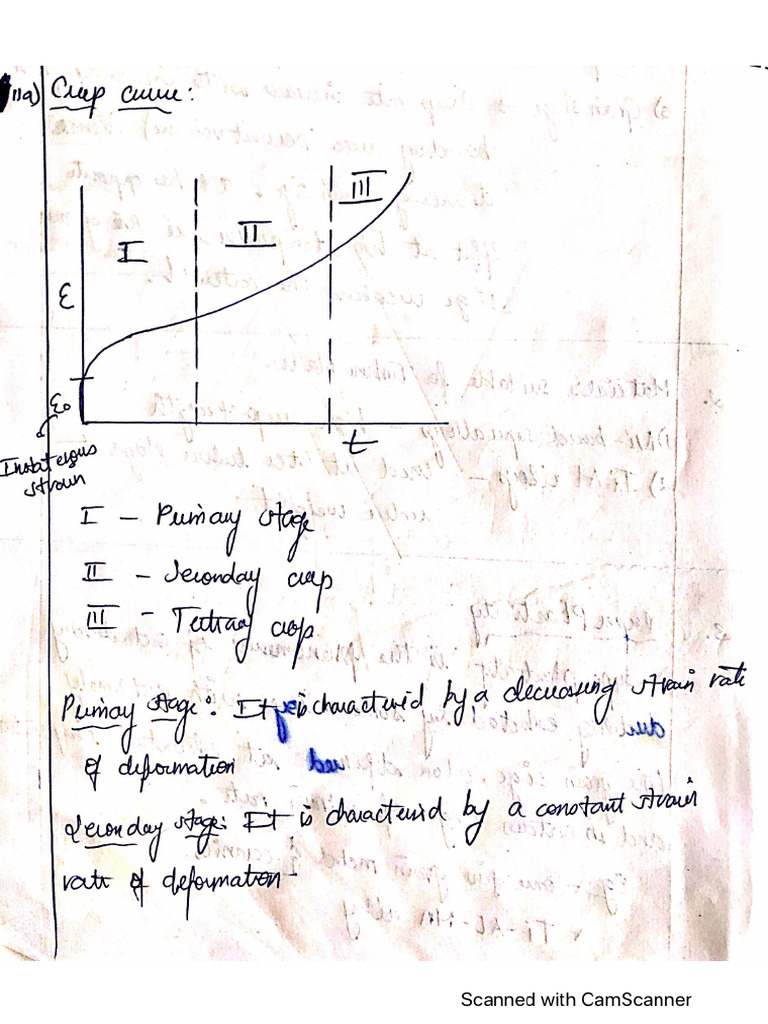 11a) Creep curve:
I
II
III
ε
ε₀
t
strain
I - Primary stage
II - Seconday creep
III - Tertiary creep
Primay stage: It is characterised by a decreasing strain rate
of deformation
Seconday stage: It is characterised by a constant strain
rate of deformation
Scanned with CamScanner